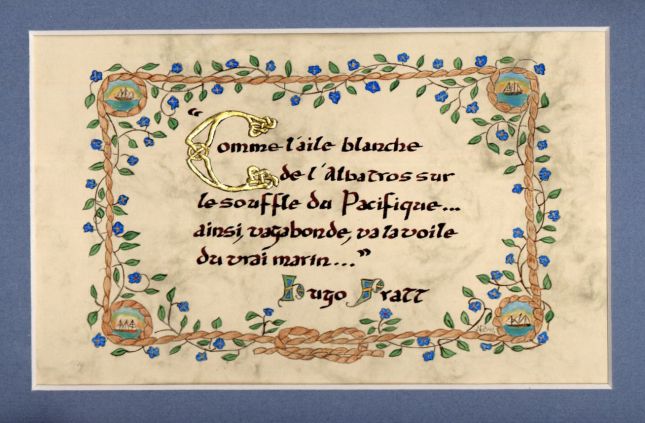 “Comme l'aile blanche
de l'Albatros sur
le souffle du Pacifique...
ainsi, vagabonde, va la voile
du vrai marin...”
Hugo Pratt